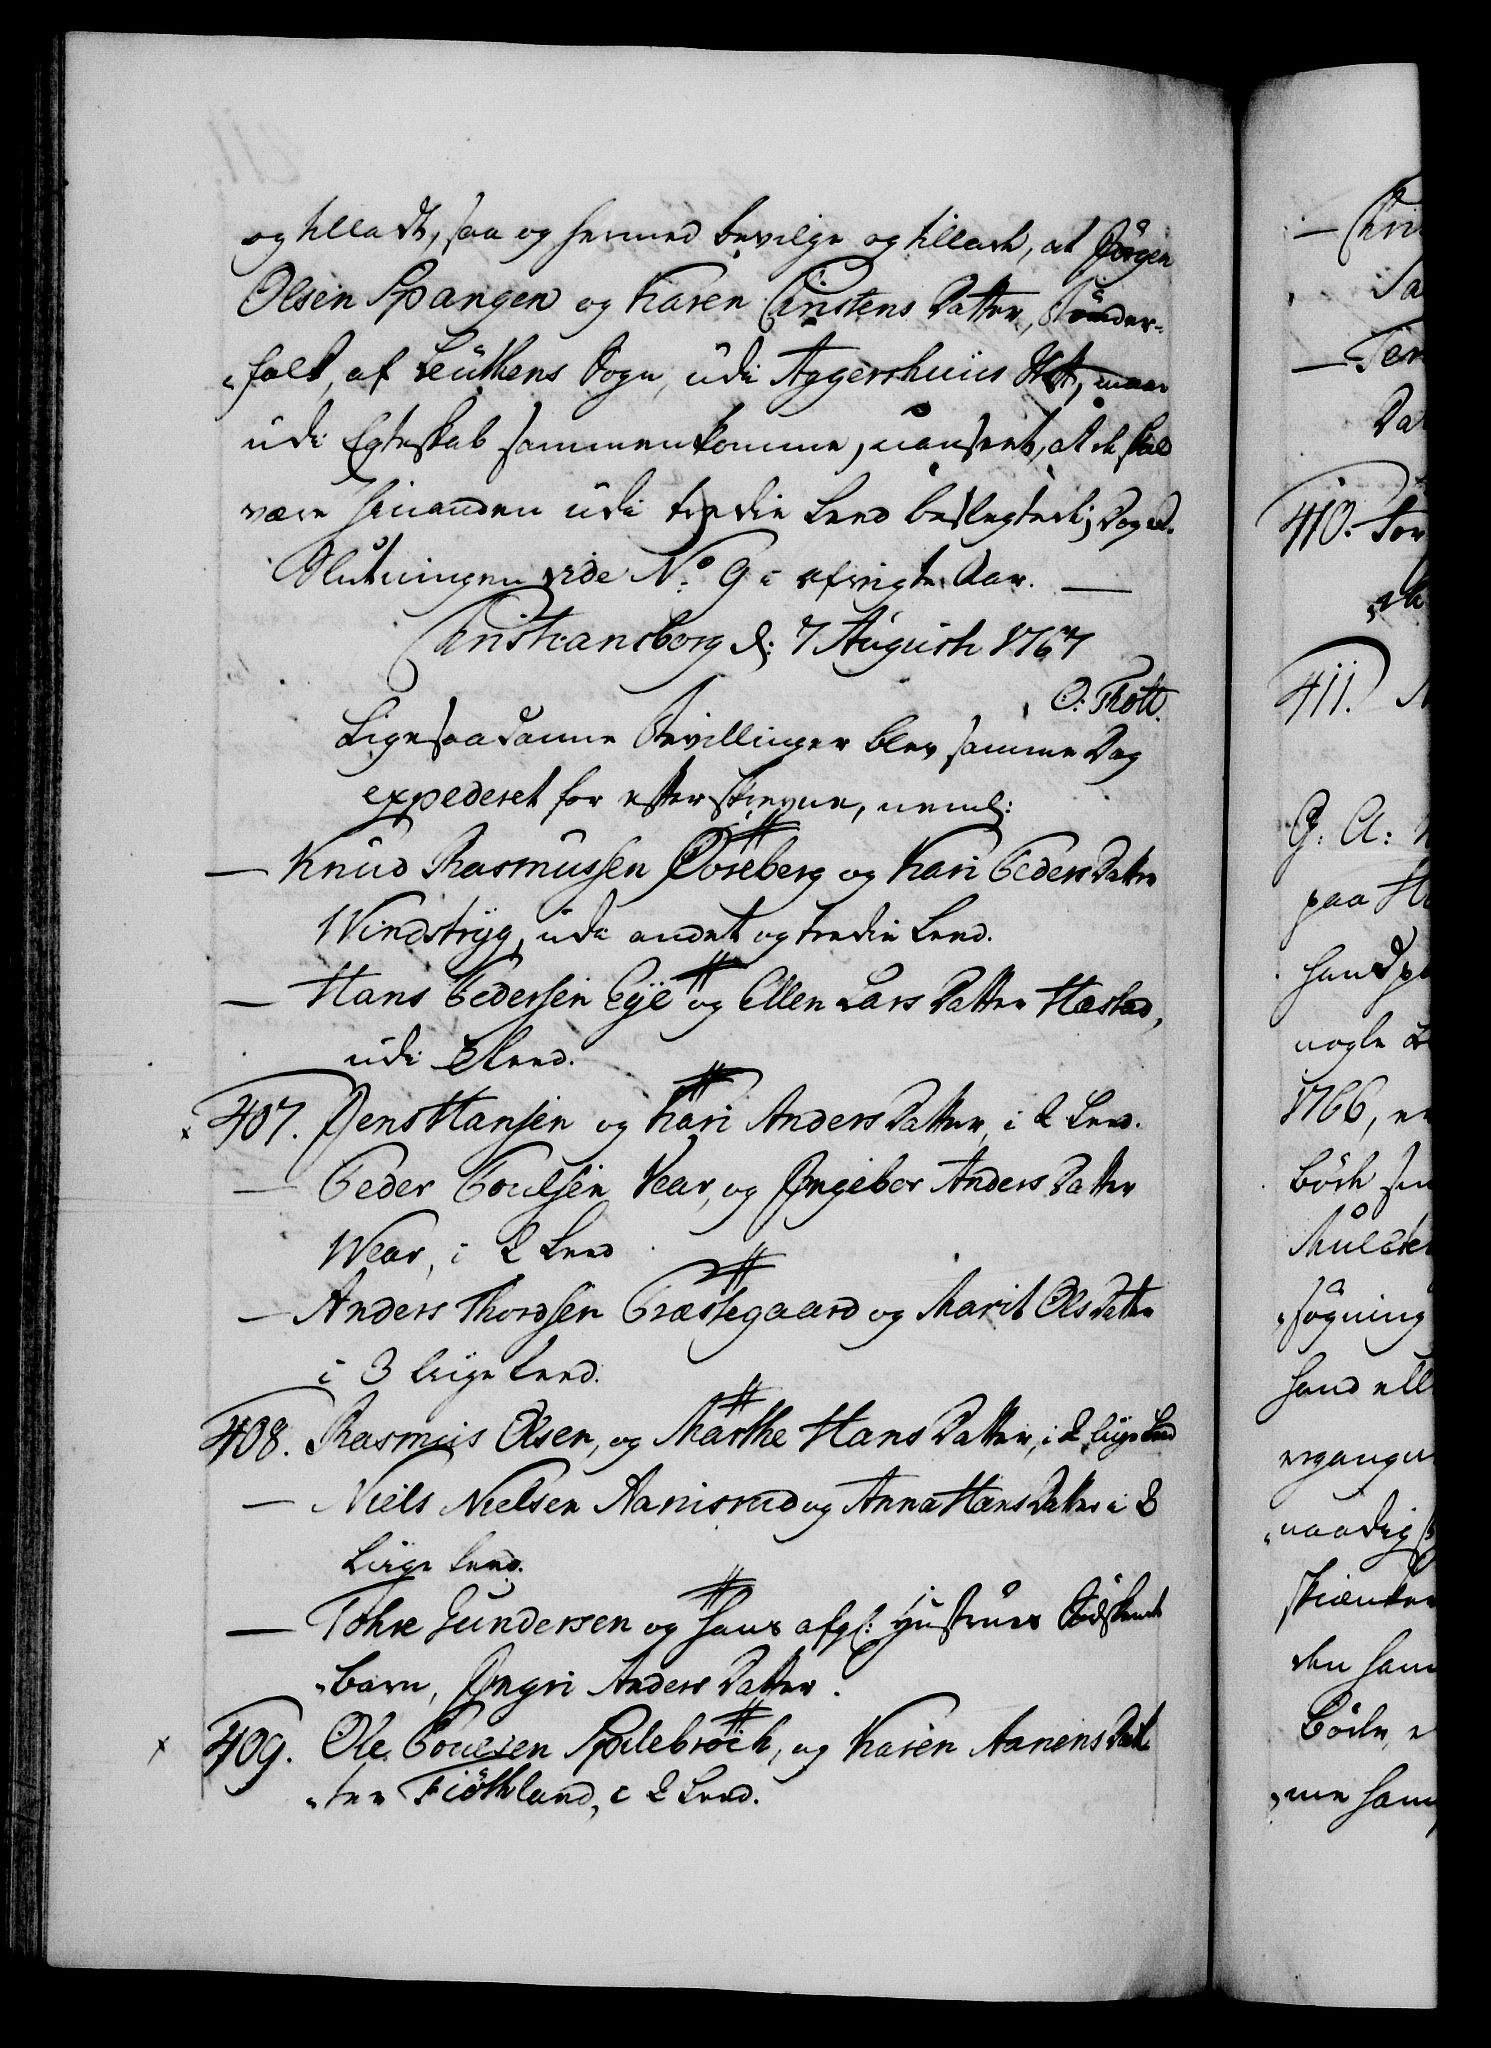 og tilladt, saa og hermed bevilge og tillade, at Jörgen
Olsen Spangen og Karen Christens Datter, Bönder-
„folk, af Leuthens Sogn, udi Aggershuus Stift, maae
udi Egteskab sammenkomme, uanseet, at de skal
være hinanden udi tredie Leed beslegtede; Dog etc.
Slutningen vide No. 9 i afvigte Aar. —
Christiansborg d: 7 Augusti 1767
O: Thott.
Ligesaadanne Bevillinger blev samme Dag
expederet for efterskrevne, neml:
— Knud Rasmussen Döreberg og Kari Peders Datter
Windstryg, udi andet og tredie Leed.
— Hans Pedersen Eye og Ellen Lars Datter Hæstad,
udi 2 Leed.
x 407. Jens Hansen og Kari Anders Datter, i 2 Leed.
— Peder Poulsen Vear, og Ingebor Anders Datter
Wear, i 2 Leed
— Anders Thordsen Præstegaard og Marit Ols Datter
i 3 liige Leed.
408. Rasmus Olsen, og Marthe Hans Datter, i 2 liige Leed
— Niels Nielsen Aanisrud og Anna Hans Datter i 3
Liige Leed.
— Tohre Gundersen og hans afg: Hustrues Södskende
„barn, Ingri Anders Datter.
x 409. Ole Poulsen Spilebroch, og Karen Aanens Dat-
„ter Fiöthland, i 2 Leed.
— Chri
— Ter
Dat
410. Tor
411.
G: A:
paa
nogle
1766,
„søgning
hand